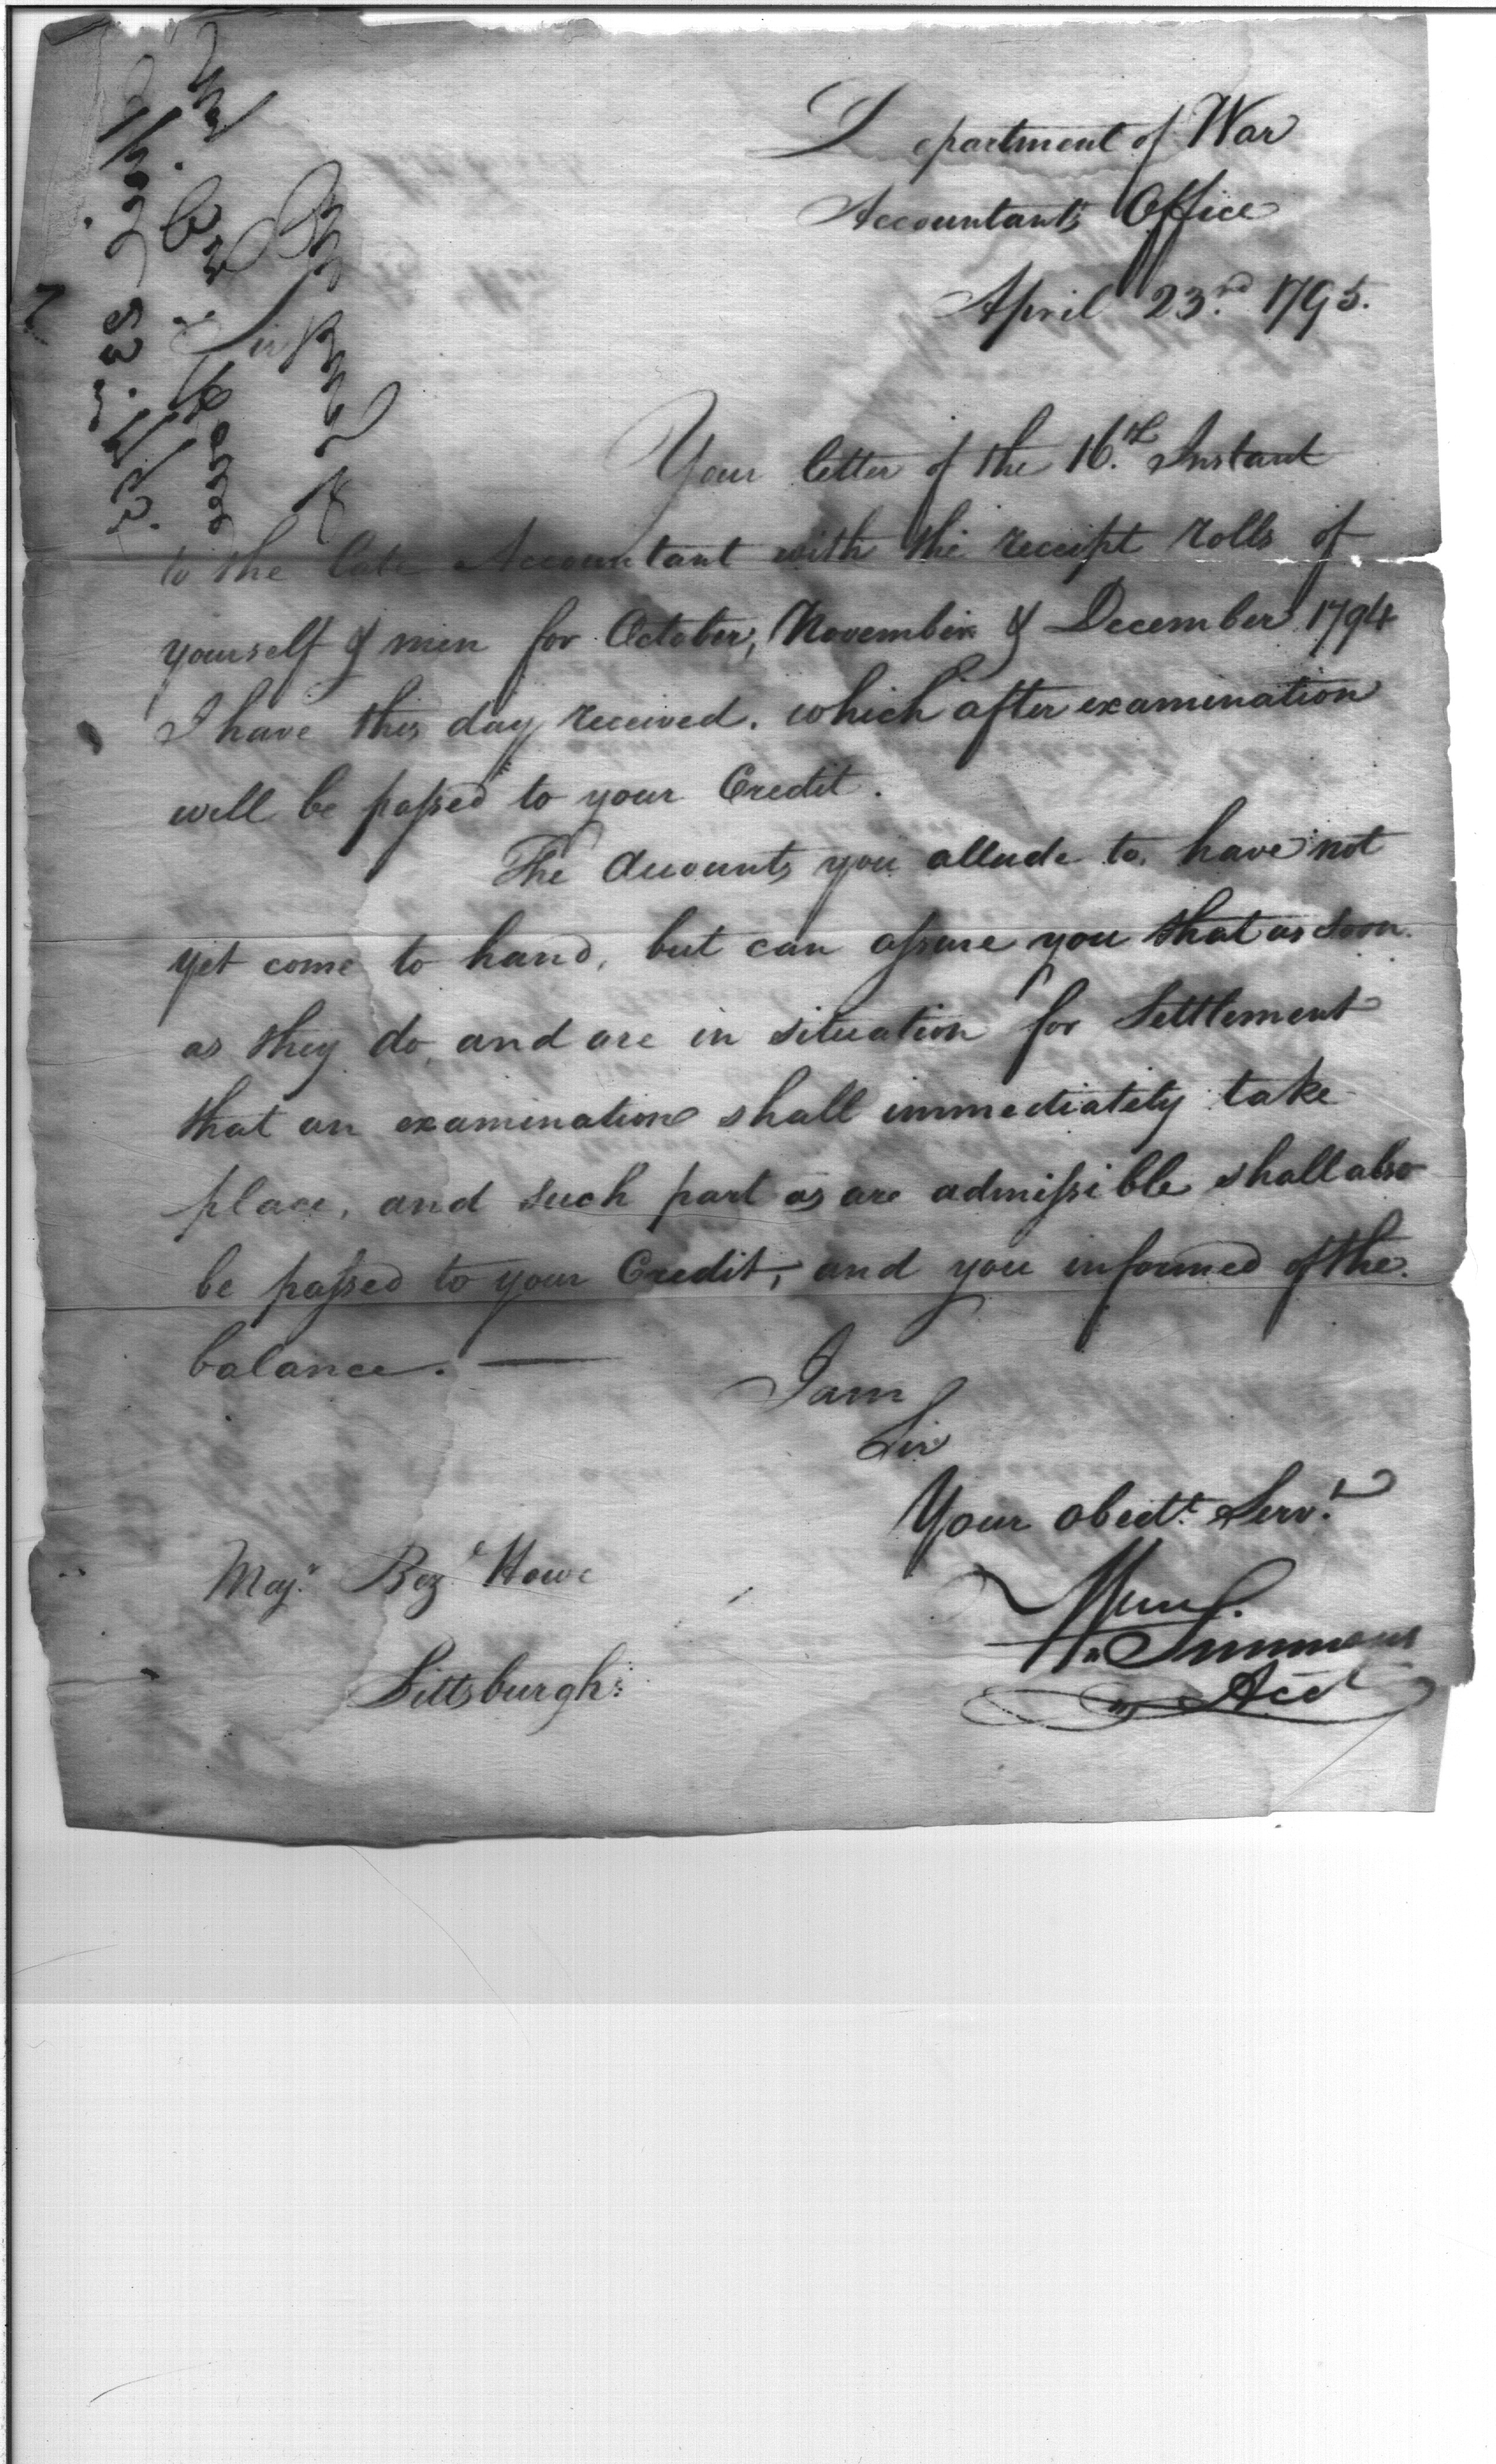 Department of War
Accountants Office
April 23.rd 1795.
Sir
Your letter of the 16.th Instant
to the late Accountant with the receipt rolls of
yourself & men for October, November & December 1794
I have this day received. which after examination
will be paſsed to your Credit.
The Accounts you allude to, have not
yet come to hand, but can aſsure you that as soon
as they do, and are in situation for Settlement
that an examination shall immediately take
place, and such part as are admiſsible shall also
be paſsed to your Credit, and you informed of the
balance. —
I am
Sir
Your obedt. Servt.
Wm Simmons
Acct
Majr. Bezl Howe
Pittsburgh: